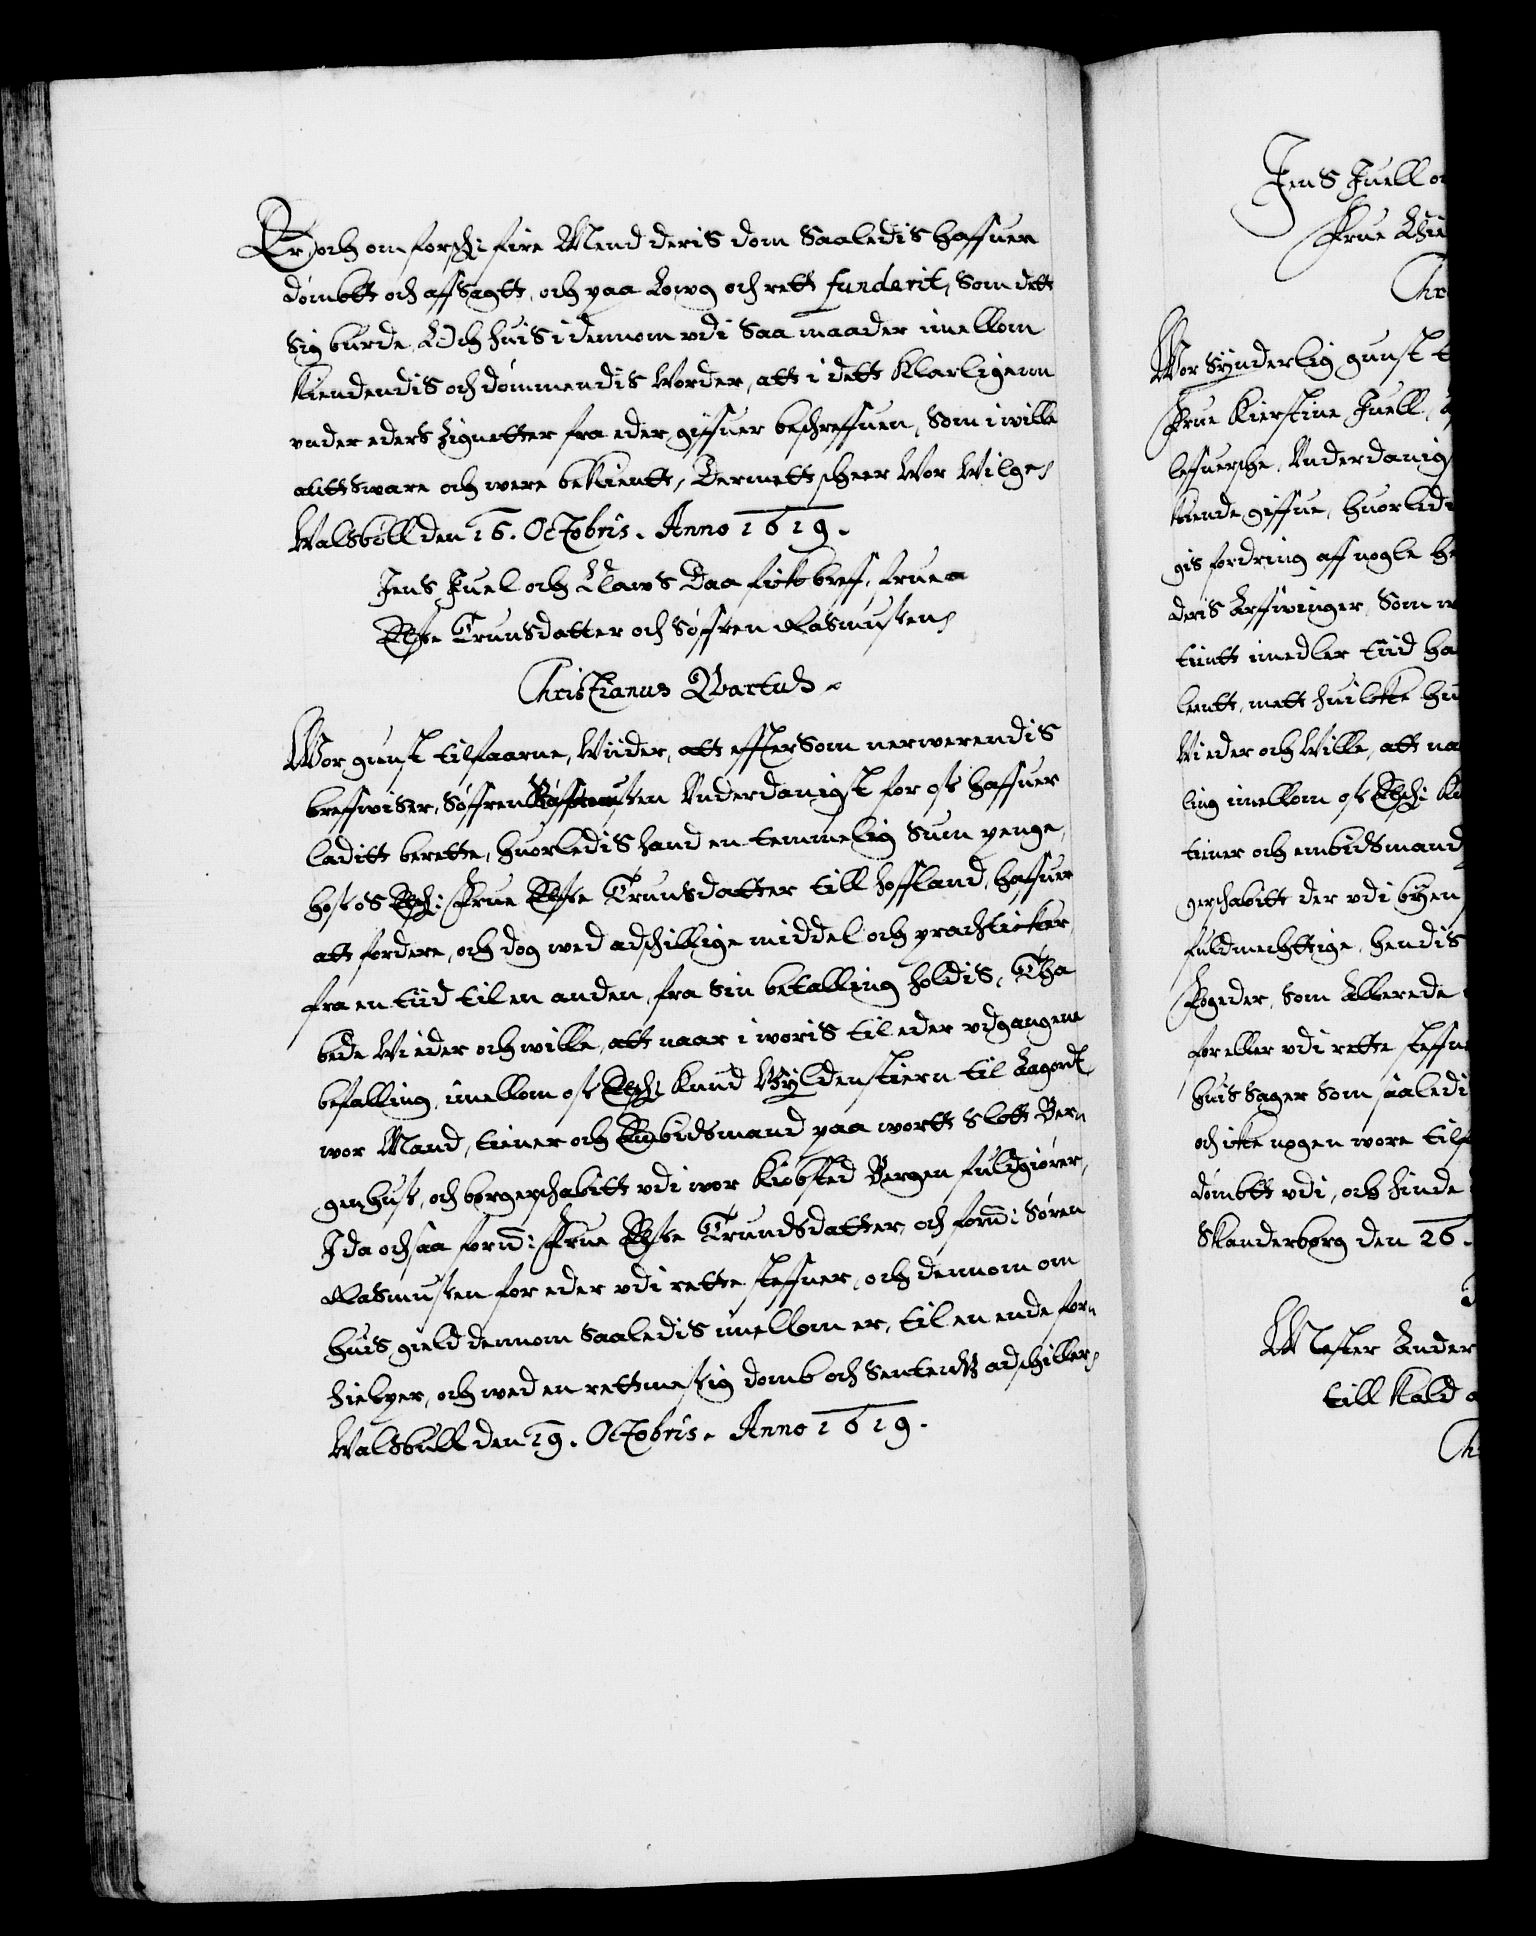 Er, och om forschi fire Mend deris dom Saaledis haffuer
dombtt och affsagtt, och paa Lowg och rett funderit, Som dett
sig burde, Och huis i dennom vdi saa maader imellom
kiendendis och dömmendis worder, att i dett klarligenn
vnder eders Zignetter fra eder giffuer beschreffuen, Som i wille
anttsware och were bekientt, Dermett scheer Wor Wilge
Walsböll den 16. Octobris. Anno 1619.
Jens Juel och Claws Daa fick breff, frue
Else Trunsdatter och Söffren Rasmussen
Christianus Qvartus
Wor gunst tilforne, Wiider, att effter som nerwerendis
breffwiser, Söffren Rasmussen Vnderdanigst for oss haffuer
laditt berette, huorledis hand en temmelig Sum penge,
hoss os Elschi Frue Else Trunsdatter till hoffland, haffuer
att fordere, och dog wed adschillige middel och prachticker
fra en tiid til en anden, fra sin betalling holdis, Tha
bede Wi eder och wille, att naar i woris til eder vdgangene
befalling, imellom oss Elschi Knud Gyldenstiern til Aagordt
wor Mand, tiener och Embidsmand paa wortt Slott Ber-
genhuss, och borgerschabitt vdi wor kiöbsted Bergen fuldgiörer,
I da och saa fornd: Frue Else Trundsdatter, och fornd: Sören
Rasmussen for eder vdi rette steffner, och dennom om
huis gield dennom saaledis imellom er, til en ende for-
hielper, och wed en rettmessig domb och Sententz adschiller
Walsbull den 19. Octobris. Anno 1619.
Jens Juell o
Frue
Chr
Wor Synderlig gunst t
Frue Kierstine Juell,
lefuersche, Vnderdanig
kiende giffue, huorledi
gis fordring aff nogle he
deris Arffwinger, Som
tiintt imedler tiid ha
lentt, mett huilcke hu
Wi eder och Wille, att na
ling imellom oss Elschi K
tiener och embidsmand
gerschabitt der vdi byen
fuldmechttige, hendis
Fogeder, Som Allerede
for eller vdi rette steffn
huis Sager Som saaledi
och icke nogen wore tilf
dombtt vdi, och hinde
Skanderborg den 26.
Mester Ander
till Kald
Ch